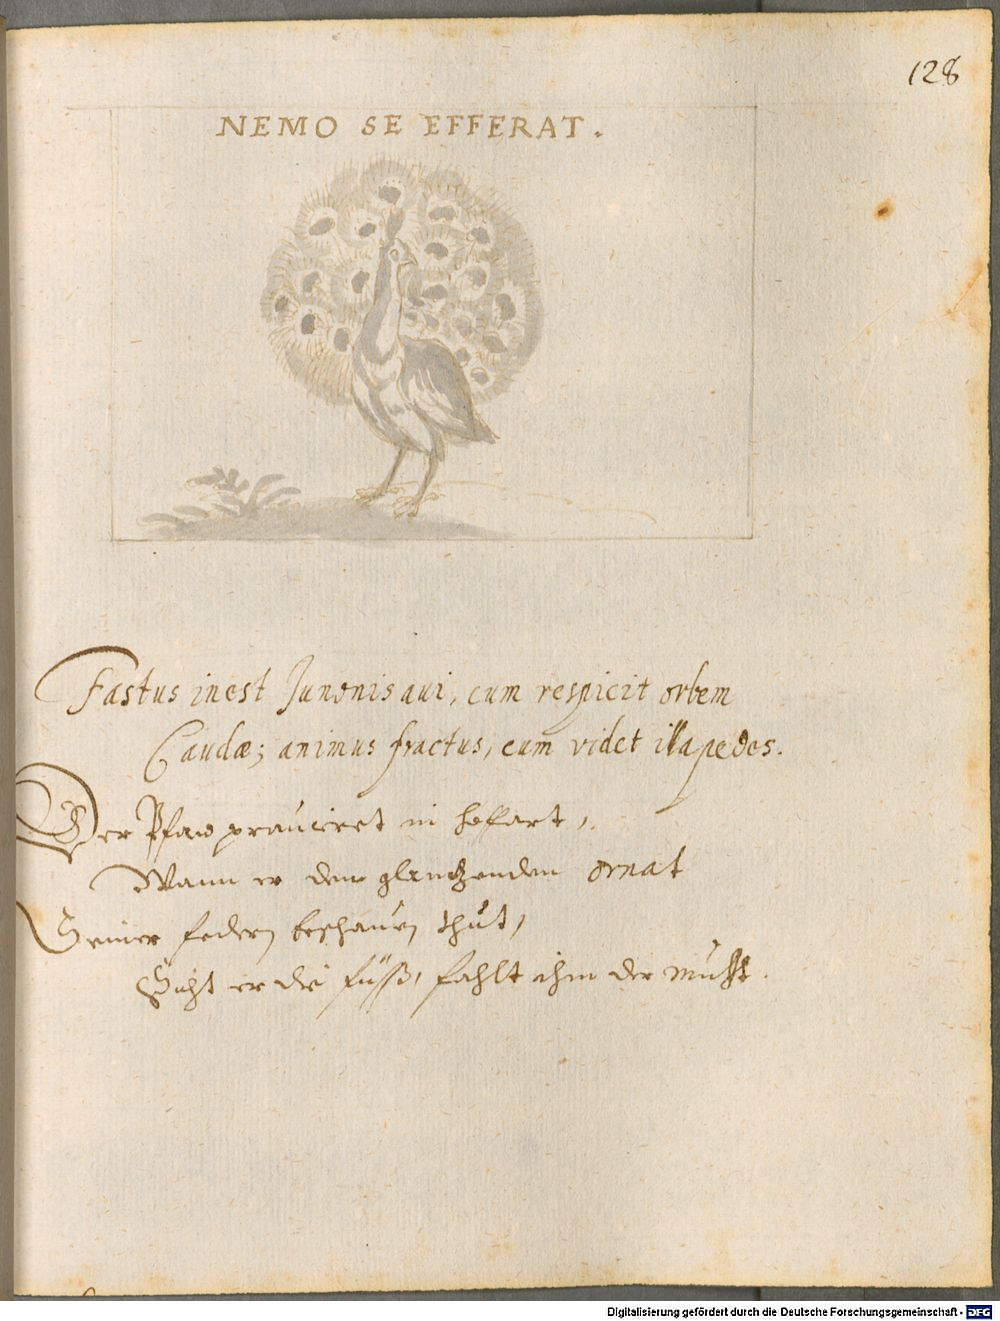 128
NEMO SE EFFERAT.
Fastus inest Junonis aui, cum respicit orbem
Caudæ; animus fractus, cum videt illa pedes.
Der Pfaw in hoffart,
Wann er den glantzenden ornat
Seiner federn beschauen thut,
Siht er die füß, fahlt ihm der muht.
Digitalisierung gefördert durch die Deutsche Forschungsgemeinschaft - DFG